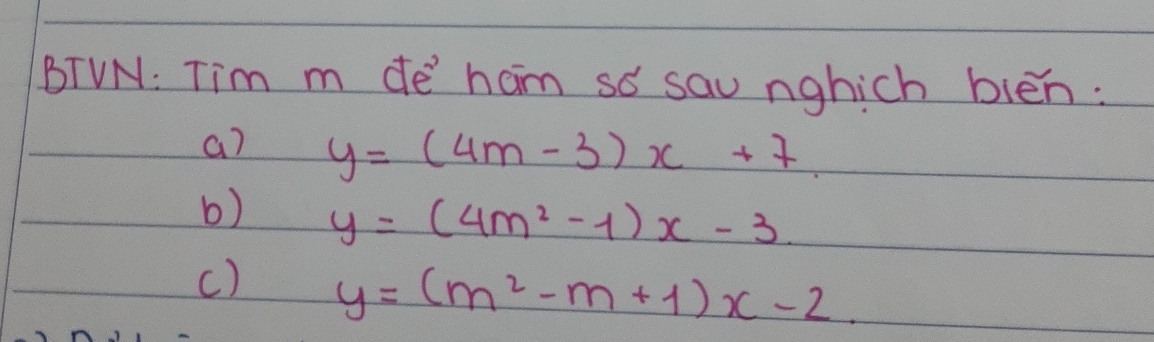 BTVN: Tìm m để hàm số sau nghịch biến:
a) y = (4m - 3)x + 7.
b) y = (4m² - 1)x - 3.
c) y = (m² - m + 1)x - 2.